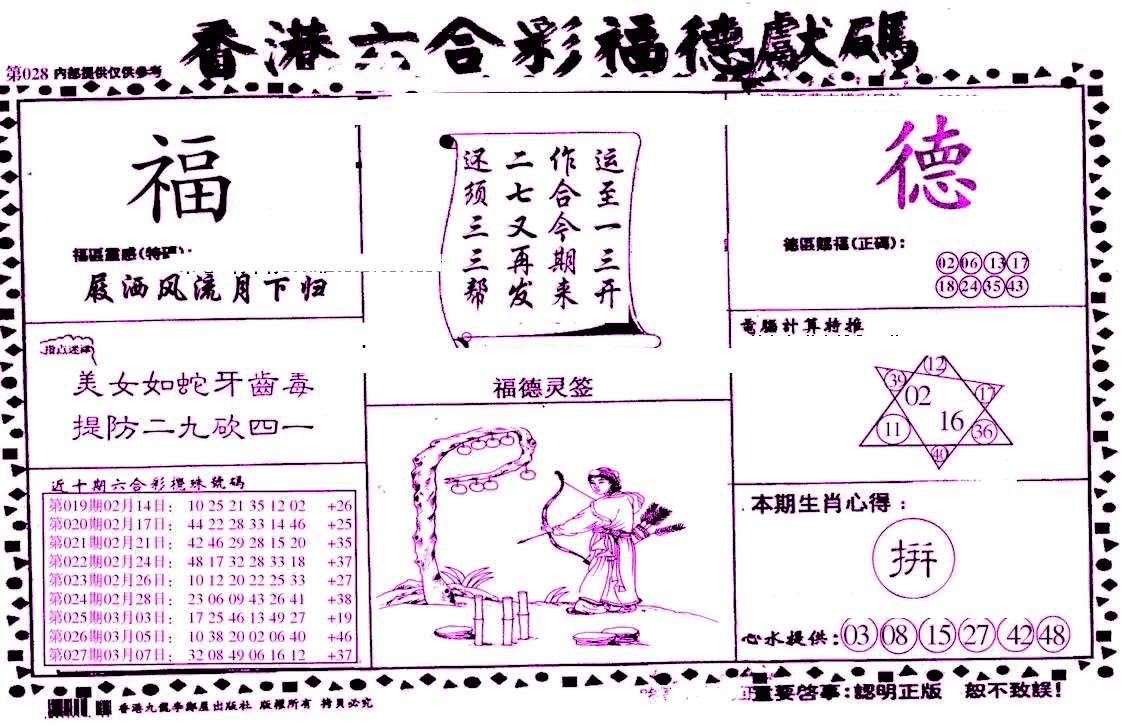 香港六合彩福德獻碼
第028 内部提供仅供参考
福
福區靈感(特碼):
屐洒风流月下归
指点迷津
美女如蛇牙齒毒
提防二九砍四一
近十期六合彩攪珠號碼
第019期02月14日: 10 25 21 35 12 02 +26
第020期02月17日: 44 22 28 33 14 46 +25
第021期02月21日: 42 46 29 28 15 20 +35
第022期02月24日: 48 17 32 28 33 18 +37
第023期02月26日: 10 12 20 22 25 33 +27
第024期02月28日: 23 06 09 43 26 41 +38
第025期03月03日: 17 25 46 13 49 27 +19
第026期03月05日: 10 38 20 02 06 40 +46
第027期03月07日: 32 08 49 06 16 12 +37
运至一三开
作合今期来
二七又再发
还须三三帮
福德灵签
德
德區賜福(正碼):
02 06 13 17
18 24 35 43
電腦計算特推
12
39 02 17
11 16 36
40
本期生肖心得:
拼
心水提供: 03 08 15 27 42 48
香港九龍李鄭屋出版社 版權所有 拷貝必究
重要啓事:認明正版 恕不致誤!